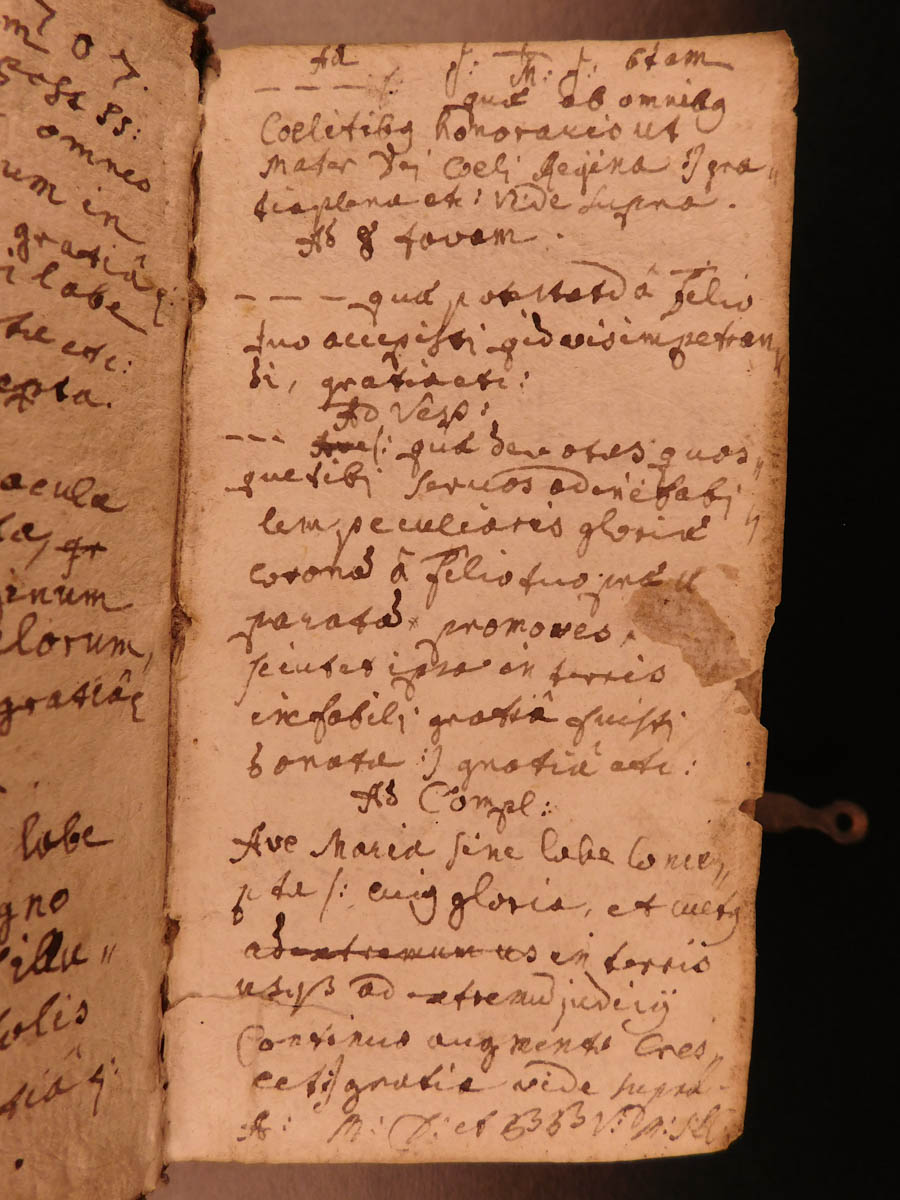 om 07.
omnes
rum in
gratiâ
i labe
etc:
epta.
acula
ta, qr
inum
lorum,
gratiâ
labe
gno
illu„
olis
tiâ
Ad J: M: J: 6tam
– – – – /: quæ ab omnibg
Coelitibg honoraris ut
Mater Dei Coeli Regina :/ gra„
tia plena etc: vide supra.
Ad 8tavam.
– – – – quæ potestatem â Filio
tuo accepisti qidvis impetran„
di, gratia etc:
Ad Vesp:
– – – Ave /: quæ devotes quos„
que tibi servos ad ineffabi„
lem peculiaris gloriæ
coronã â Filio tuo præ„
paratã promoves,
sicut et ipsa in terris
ineffabili gratiâ fuisti
donata :/ gratiâ etc:
Ad Compl:
Ave Maria sine labe conce„
pta /: cuig gloria, et cultg
ad extremum us in terris
usq ad extremũ judicij
Continuo augmento cres„
cet :/ gratia vide supra.
A: M: D: et